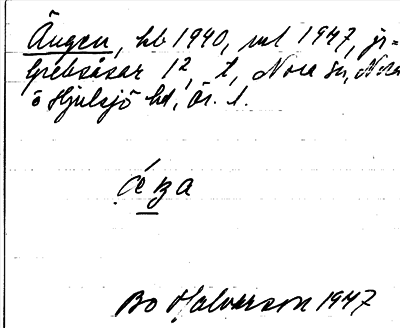 Ängen, hb 1940, ml 1947, jr-
Grebsåsar 12, t, Nora sn, Nora
o Hjulsjö hd, Ör. l.
Bo Halvarson 1947